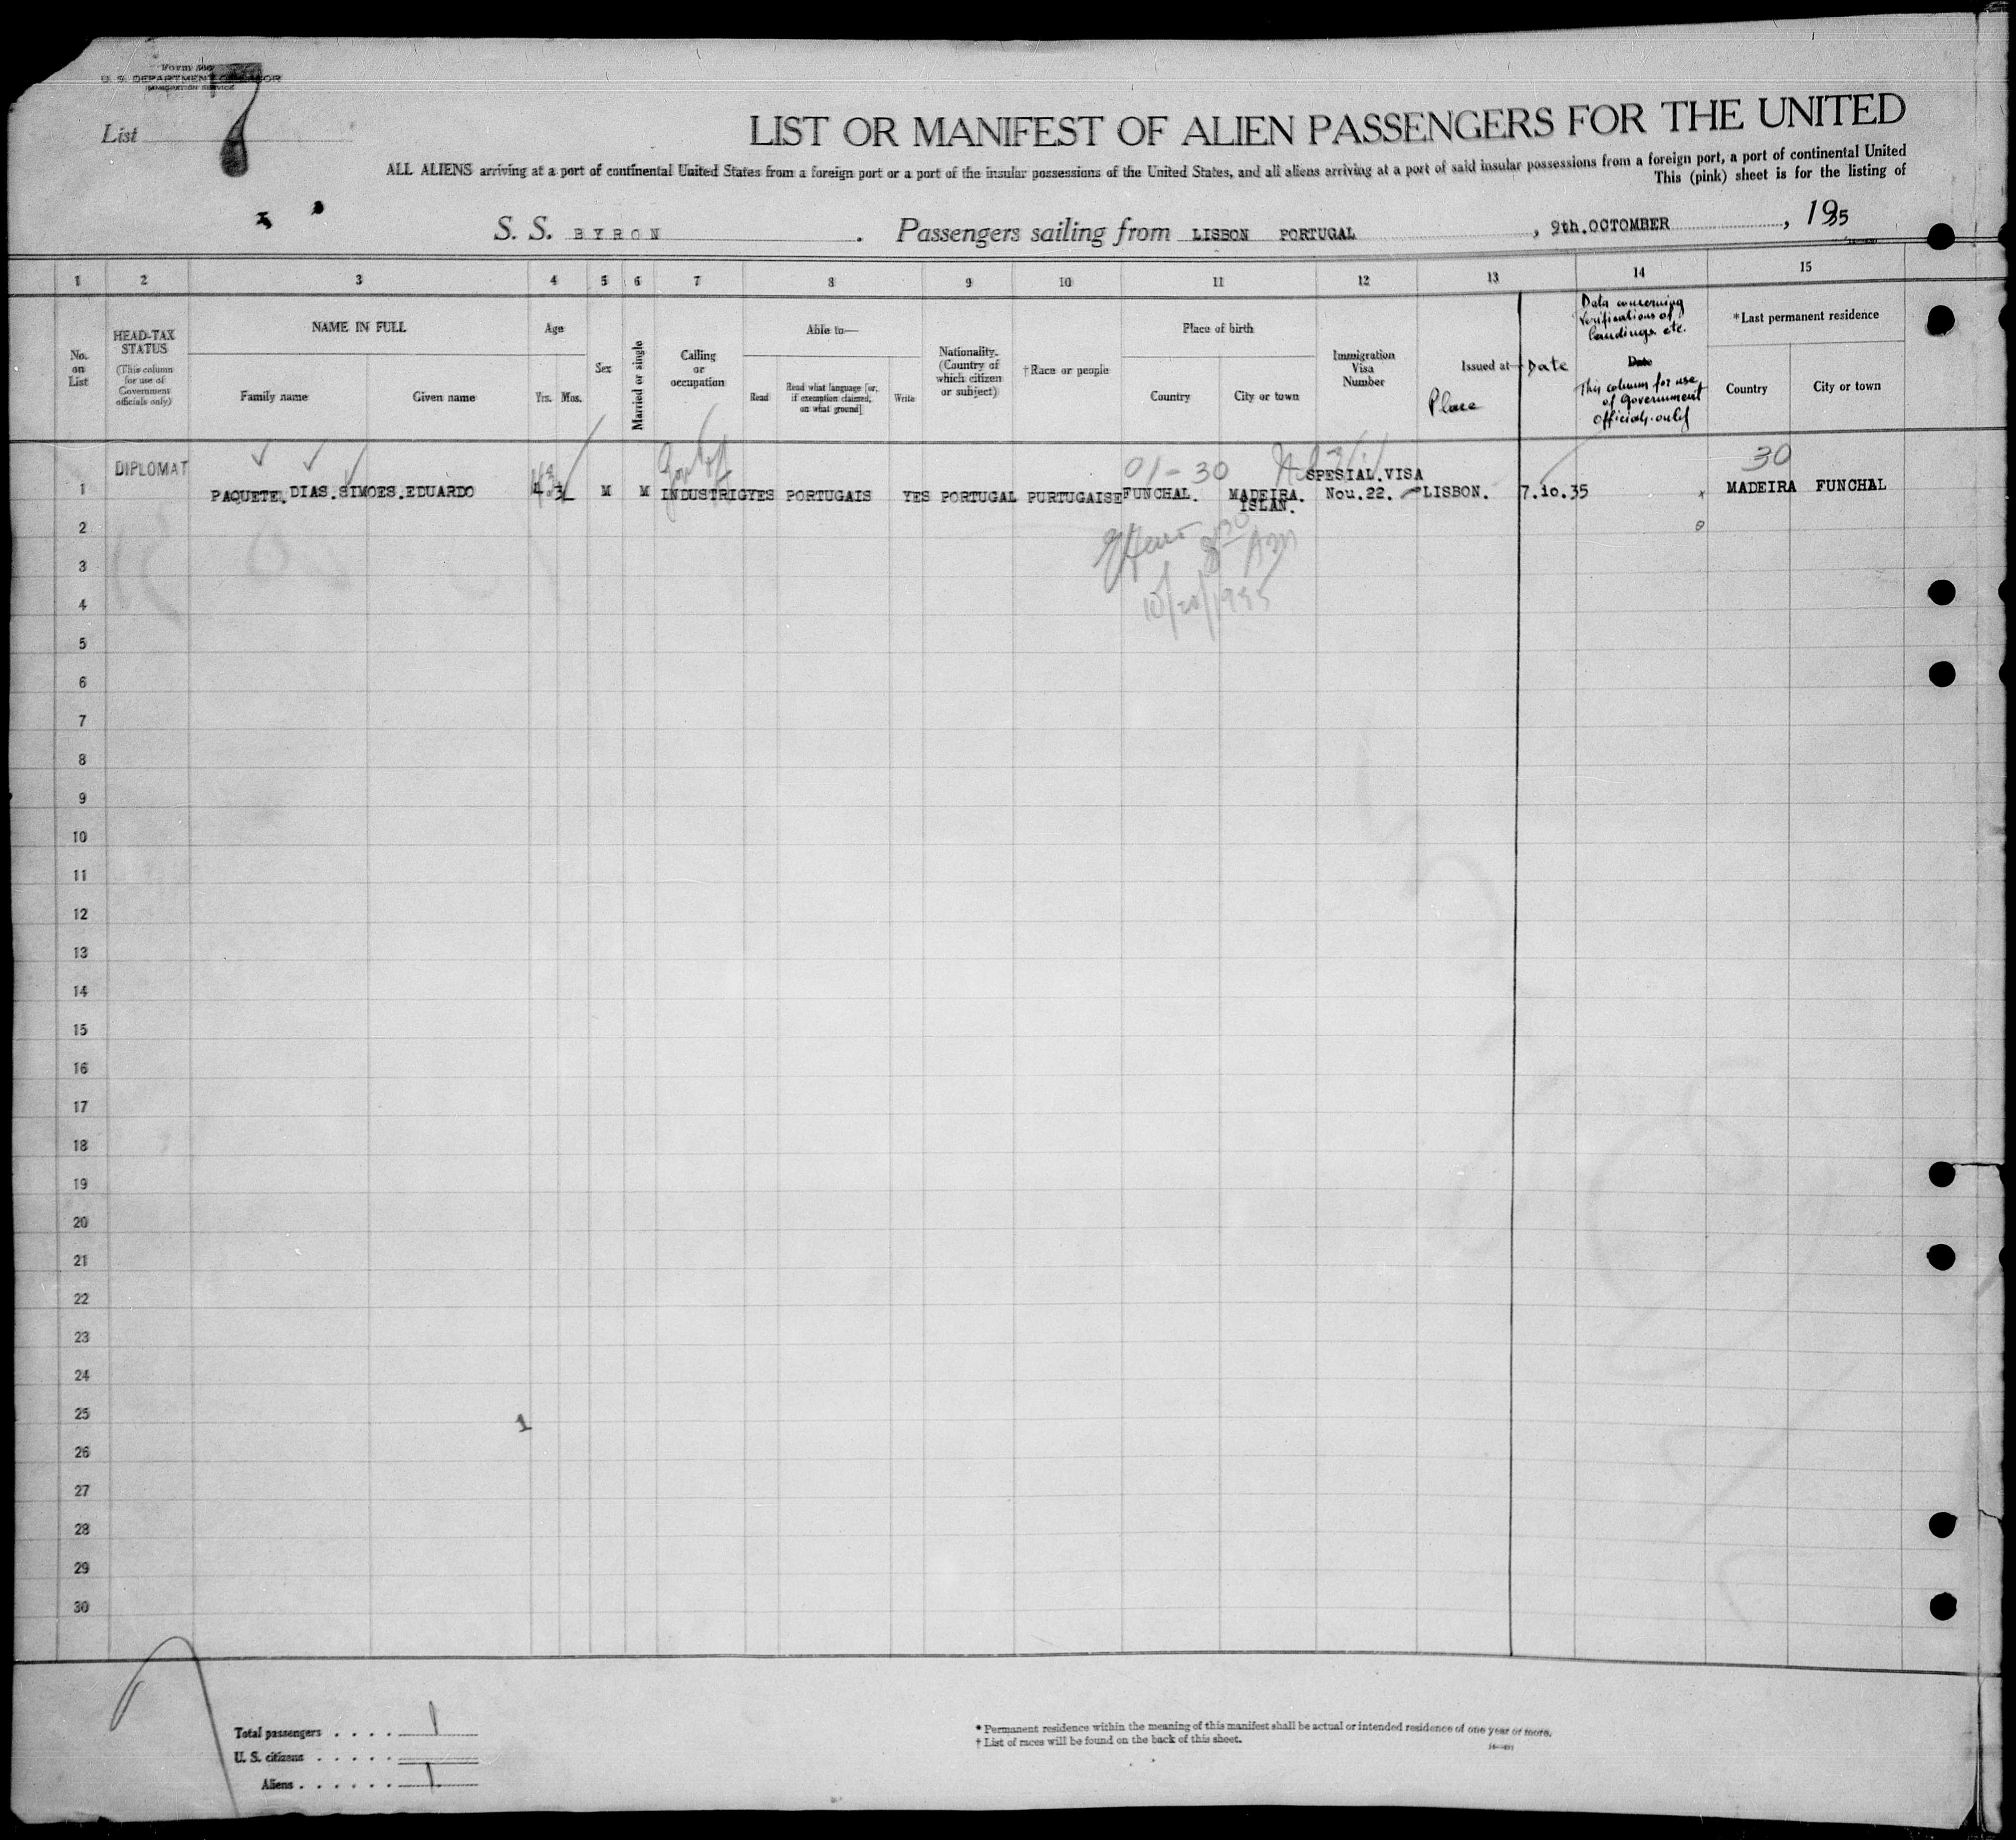 Form 500
U. S. DEPARTMENT OF LABOR
IMMIGRATION SERVICE
List
LIST OR MANIFEST OF ALIEN PASSENGERS FOR THE UNITED
ALL ALIENS arriving at a port of continental United States from a foreign port or a port of the insular possessions of the United States, and all aliens arriving at a port of said insular possessions from a foreign port, a port of continental United
This (pink) sheet is for the listing of
S. S. BYRON . Passengers sailing from LISBON PORTUGAL , 9th.OCTOMBER , 1935
1 2 3 4 5 6 7 8 9 10 11 12 13 14 15
No. on List
HEAD-TAX STATUS
(This column for use of Government officials only)
NAME IN FULL
Family name
Given name
Age
Yrs. Mos.
Sex
Married or single
Calling or occupation
Able to—
Read
Read what language [or, if exemption claimed, on what ground]
Write
Nationality. (Country of which citizen or subject)
†Race or people
Place of birth
Country
City or town
Immigration Visa Number
Issued at—
Place
Date
Data concerning verifications of landings, etc.
Date
This column for use of Government officials only
*Last permanent residence
Country
City or town
DIPLOMAT
01-30
SPESIAL.VISA
30
1 PAQUETE. DIAS.SIMOES.EDUARDO 43 M M INDUSTRIG YES PORTUGAIS YES PORTUGAL PURTUGAISE FUNCHAL. MADEIRA. Nou.22. LISBON. 7.10.35 MADEIRA FUNCHAL
ISLAN.
2
3
4
10/20/1935
5
6
7
8
9
10
11
12
13
14
15
16
17
18
19
20
21
22
23
24
25
1
26
27
28
29
30
Total passengers . . . . 1
U. S. citizens . . . . .
Aliens . . . . . . 1
* Permanent residence within the meaning of this manifest shall be actual or intended residence of one year or more.
† List of races will be found on the back of this sheet.